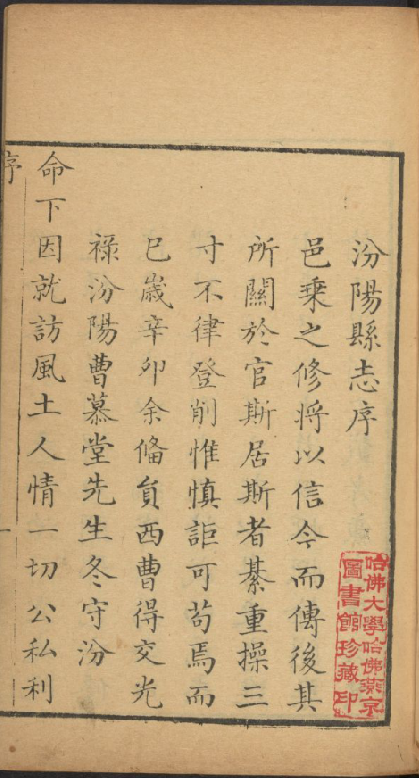 汾陽縣志序
邑乘之修將以信今而傳後其
所關於官斯居斯者綦重操三
寸不律登削惟慎詎可苟焉而
已歲辛卯余備員西曹得交光
祿汾陽曹慕堂先生冬守汾
命下因就訪風土人情一切公私利
序
一
哈佛大學哈佛燕京
圖書館珍藏印